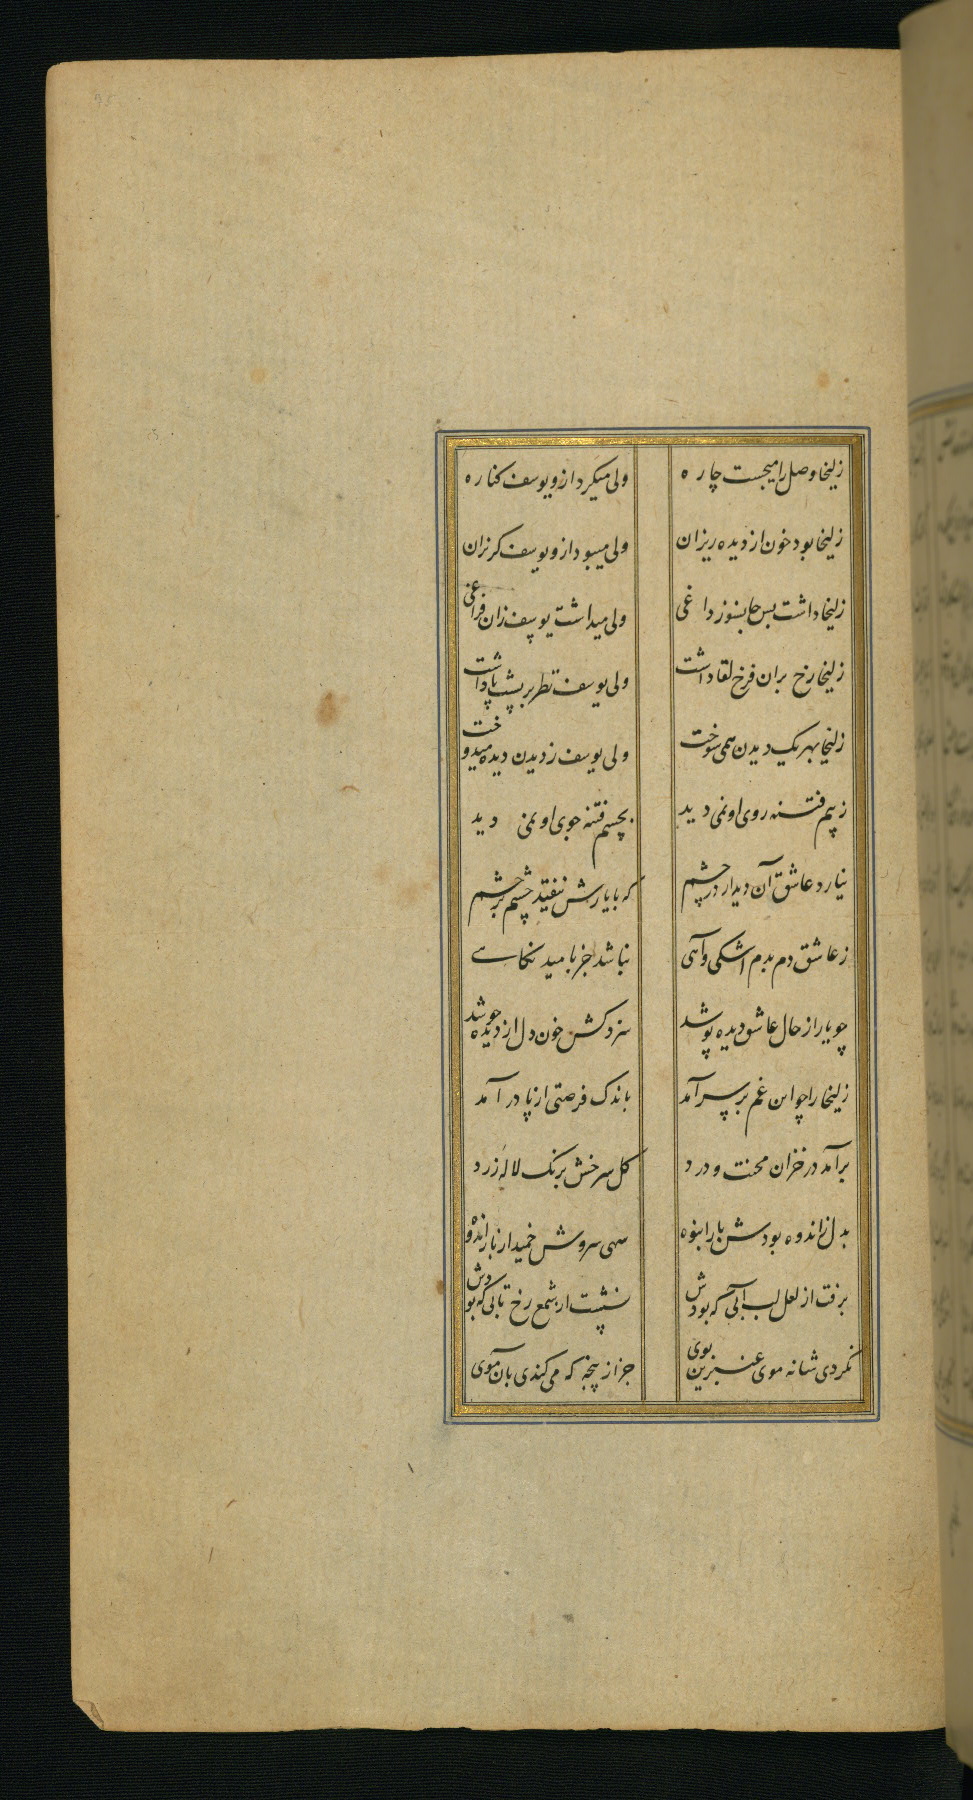 زلیخا وصل را میجست چاره
ولی میکرد ازو یوسف کناره
زلیخا بود خون از دیده ریزان
ولی میبود ازو یوسف کریزان
زلیخا داشت بس جانسوز داغی
ولی میداشت یوسف زان فراغی
زلیخا رخ بران فرخ لقا داشت
ولی یوسف نظر بر پشت پا داشت
زلیخا بهر یک دیدن همی سوخت
ولی یوسف ز دیدن دیده میدوخت
ز بیم فتنه روی او نمی دید
بچشم فتنه جوی او نمی دید
نیارد عاشق آن دیدار در چشم
که با یارش نیفتد چشم بر چشم
ز عاشق دم بدم اشکی و آهی
نباشد جز بامید نکاهی
چو یار از حال عاشق دیده پوشد
سزد کش خون دل از دیده جوشد
زلیخا را چو این غم بر سر آمد
باندک فرصتی از پا در آمد
برآمد در خزان محنت و درد
کل سرخش برنک لاله زرد
بدل ز اندوه بودش بار انبوه
سهی سروش خمید از بار اندوه
برفت از لعل لب آبی که بودش
نشست از شمع رخ تابی که بودش
نکردی شانه موی عنبرین بوی
جز از پنجه که می کندی بان موی